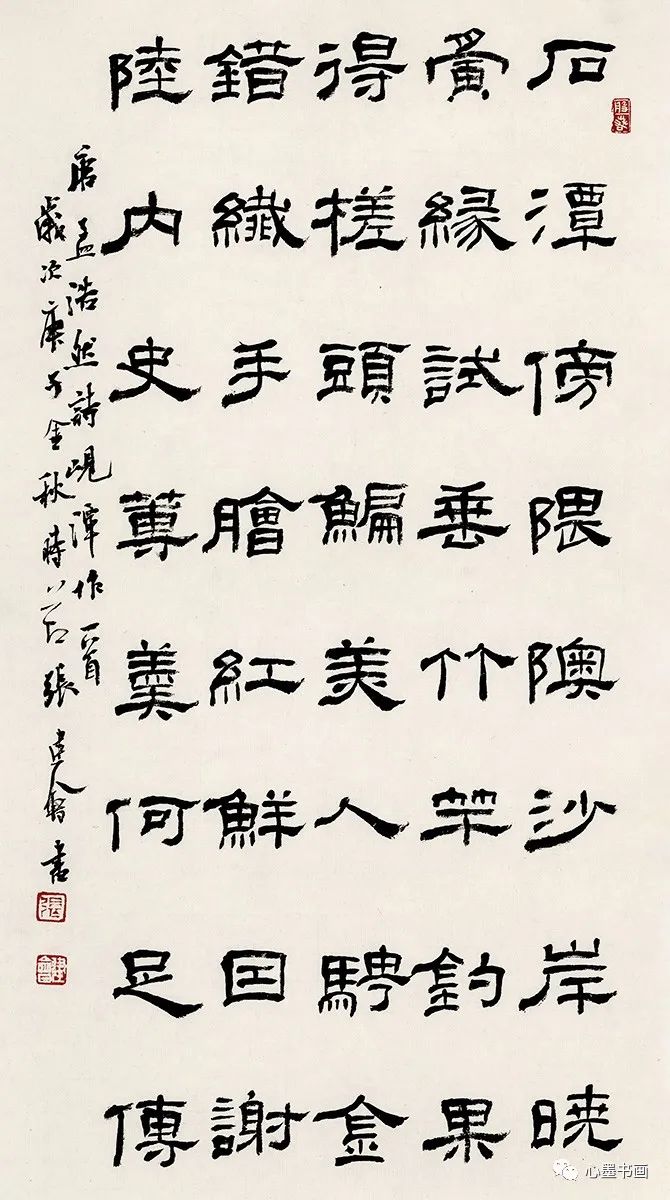 石潭傍隈隩沙岸曉
夤緣試垂竹竿釣果
得槎頭鯿美人騁金
錯纖手膾紅鮮因謝
陸內史蓴羹何足傳
唐孟浩然詩峴潭作一首
歲次庚子金秋時節張建會書
張
建會
心墨书画